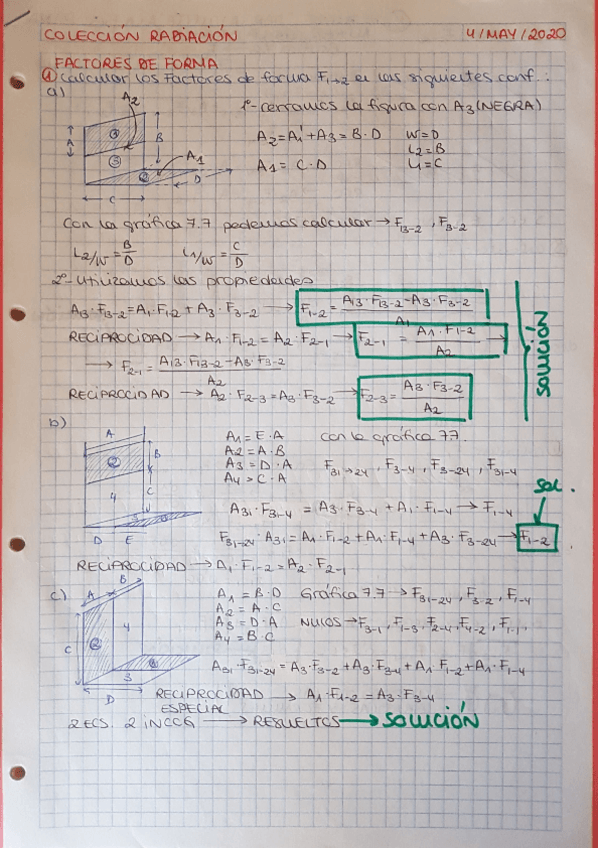 COLECCIÓN RADIACIÓN 4/MAY/2020
FACTORES DE FORMA
① Calcular los Factores de forma F1→2 en las siguientes conf.:
a)
A2
1º- cerramos la figura con A3 (NEGRA)
A B A1 D C
A2 = A1' + A3 = B·D W=D
L2=B
A1 = C·D L1=C
Con la gráfica 7.7 podemos calcular → F13-2, F3-2
L2/W = B/D L1/W = C/D
2º- Utilizamos las propiedades
A3·F3-2 = A1·F1-2 + A3·F3-2 → F1-2 = A13·F13-2 - A3·F3-2 / A1
RECIPROCIDAD → A1·F1-2 = A2·F2-1 → F2-1 = A1·F1-2 / A2 →
→ F2-1 = A13·F13-2 - A3·F3-2 / A2
RECIPROCIDAD → A2·F2-3 = A3·F3-2 → F2-3 = A3·F3-2 / A2
SOLUCIÓN
b)
A B 2 4 C 3 D E
A1 = E·A con la gráfica 7.7.
A2 = A·B
A3 = D·A F31→24, F3-4, F3-24, F31-4
A4 = C·A
sol.
A31·F31-4 = A3·F3-4 + A1·F1-4 → F1-4
F31-24·A31 = A1·F1-2 + A1·F1-4 + A3·F3-24 → F1-2
RECIPROCIDAD → A1·F1-2 = A2·F2-1
c)
A B C 2 4 3 D
A1 = B·D Gráfica 7.7 → F31-24, F3-2, F1-4
A2 = A·C
A3 = D·A NULOS → F3-1, F1-3, F2-4, F4-2, F1-1,
A4 = B·C
A31·F31-24 = A3·F3-2 + A3·F3-4 + A1·F1-2 + A1·F1-4
RECIPROCIDAD → A1·F1-2 = A3·F3-4
ESPECIAL
2 ECS. 2 INCOG → RESUELTOS → SOLUCIÓN